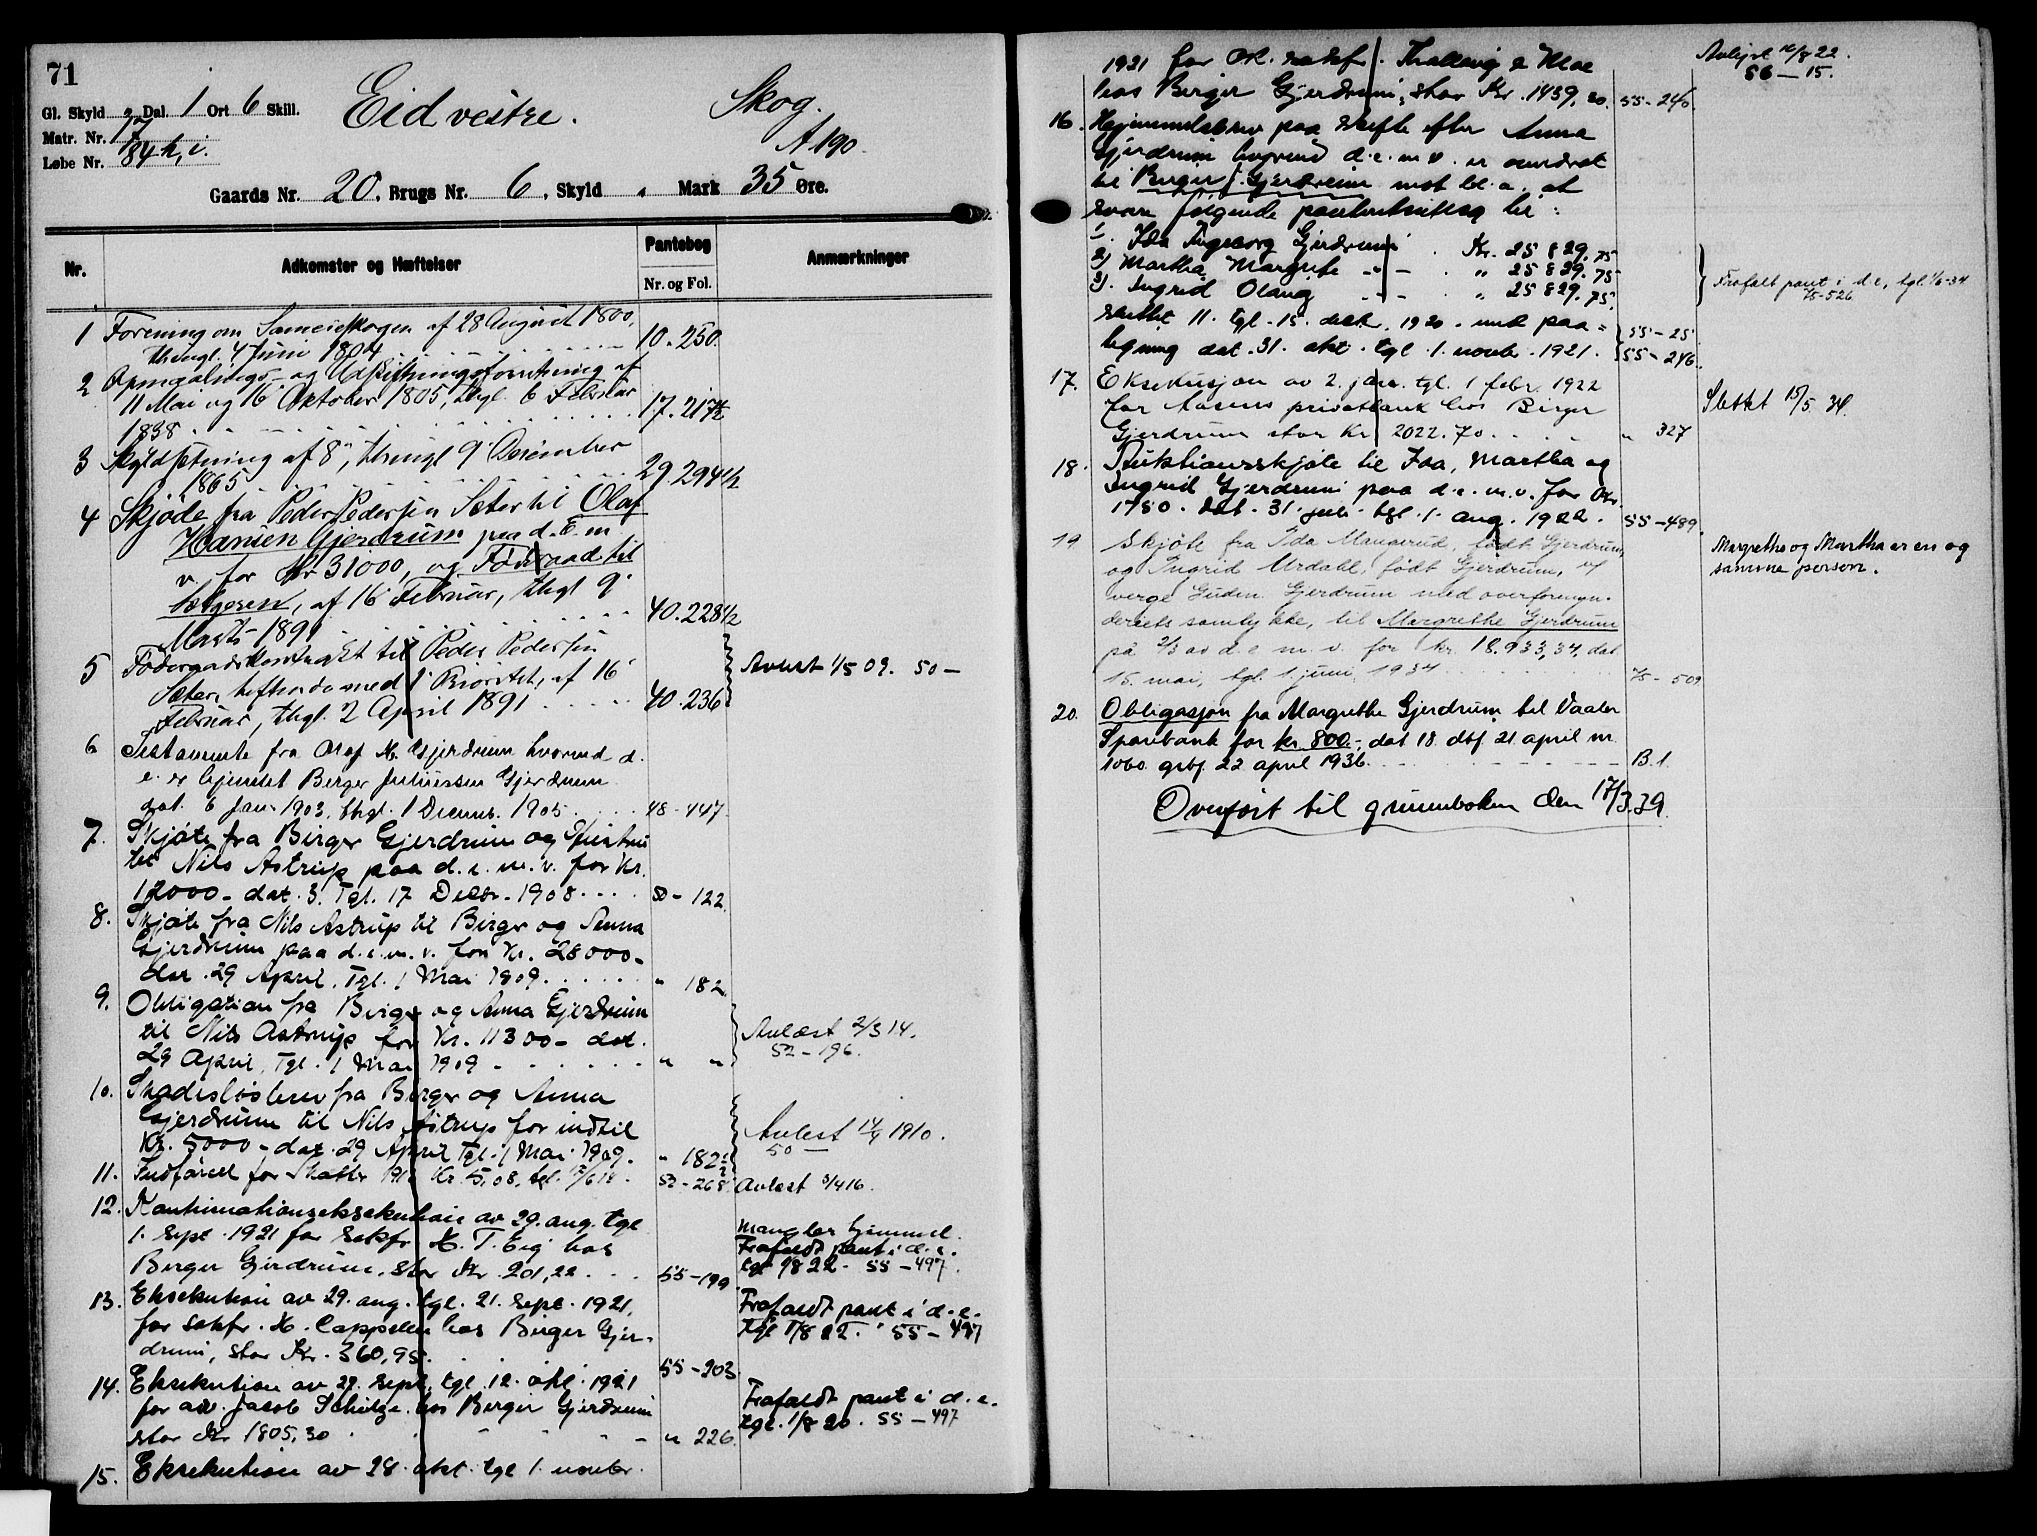 71
Gl. Skyld " Dal. 1 Ort 6 Skill.
Matr. Nr. 17
Løbe Nr. 84 h, i.
Eid vestre.
Skog.
A 190
Gaards Nr. 20, Brugs Nr. 6, Skyld " Mark 35 Øre.
Nr.
Adkomster og Hæftelser
Pantebog
Nr. og Fol.
Anmærkninger
1 Forening om Sameieskogen af 28 August 1800,
thingl. 4 Juni 1804 10.250.
2 Opmaalings- og Udskiftningsforretning af
11 Mai og 16 Oktober 1805, thgl. 6 Februar
1838 17.217 1/2
3 Skyldsetning af 8", thingl 9 Desember
1865 29.294 1/2
4 Skjøde fra Peder Pedersen Sæter til Olaf
Hansen Gjerdrum paa d. E. m
v. for Kr 31000, og Føderaad til
sælgeren, af 16 Februar, thgl 9
Marts 1891 40.228 1/2
5 Føderaadskontrakt til Peder Pedersen
Sæter, heftende med 1 Prioritet, af 16
Februar, thgl. 2 April 1891 40.236 Avlest 1/5 09. 50 —
6 Testamente fra Olaf H. Gjerdrum hvorved d.
e. er hjemlet Berger Juliussen Gjerdrum
dat. 6 Jan. 1903, thgl. 1 Decemb. 1905 48-447.
7. Skjøte fra Birger Gjerdrum og Hustru
til Nils Astrup paa d. e. m. v. for Kr.
12000 - dat. 3. Tgl. 17 Decbr. 1908 50-122.
8. Skjøte fra Nils Astrup til Birger og Anna
Gjerdrum paa d. e. m. v. for Kr. 28000 -
dat. 29 April, Tgl. 1 Mai 1909 " 182.
9. Obligation fra Birger og Anna Gjerdrum
til Nils Astrup for Kr. 11300 - dat.
29 April, Tgl. 1 Mai 1909 " "
Avlæst 2/3 14.
52 - 196.
10. Skadesløsbrev fra Birger og Anna
Gjerdrum til Nils Astrup for indtil
Kr. 5000 - dat. 29 April Tgl. 1 Mai 1909. " 182 1/2
Avlest 14/9 1910.
50 —
11. Utlæg for Skatter Kr. 5,08, tgl. 52-268 Avlest 5/4 16.
12. Kontinuationseksekution av 29. ang. tgl
1. Sept. 1921 for sakfr. H. T. Eig hos
Berger Gjerdrum, stor Kr. 201,22 55-199
Mangler hjemmel.
Frafaldt pant i d. e.
tgl 1/8 22. 55-497.
13. Eksekution av 29. aug. tgl. 21. Sept. 1921,
for sakfr. H. Cappelen hos Birger Gjer-
drum, stor Kr. 360,95. 55-203
Frafaldt pant i d. e.
tgl 1/8 22. 55-497
14. Eksekution av 27. Sept. tgl 12. okt. 1921
for adv. Jacob Schilze hos Berger Gjerdrum
stor Kr 1805,30 " 226.
Frafaldt pant i d. e.
tgl. 1/8 20. 55-497
15. Eksekution av 28. okt. tgl 1. novbr.
1921 for O.R. sakf. Thallaug & Moe
hos Berger Gjerdrum, stor Kr. 1439,20. 55-240.
Avlyst 16/8 22.
56-15.
16. Hjemmelsbrev paa skifte efter Anna
Gjerdrum hvorved d. e. m. v. er overdrat
til Birger J. Gjerdrum mot bl. a. at
svare følgende panteutlæg til:
1. Ida Ingeborg Gjerdrum Kr. 25829.75
2) Martha Margrete - " - " 25829.75
3). Ingrid Olaug - " - " 25829.75.
Frafalt pant i d. e. tgl. 1/6-34
7/5-526
sluttet 11. tgl. 15. decbr. 1920. med paa- 55-25
tegning dat. 31. okt. tgl. 1. novbr. 1921. 55-246.
17. Eksekusjon av 2. jan. tgl. 1 febr. 1922
for Aasens privatbank hos Birger
Gjerdrum stor Kr 2022.70 " 327
Slettet 15/5. 34.
18. Auktionsskjøte til Ida, Martha og
Ingrid Gjerdrum paa d. e. m. v. for Kr.
1750. Dat. 31. juli. tgl. 1. aug. 1922. 55-489.
19 Skjøte fra Ida Mangerud, født Gjerdrum,
og Ingrid Urdahl, født Gjerdrum, v/
verge Guden Gjerdrum med overformyn-
deriets samtykke, til Margrethe Gjerdrum
på 2/3 av d. e. m. v. for kr. 18.933,34, dat
15. mai, tgl. 1. juni 1934 7/5-509
Margrethe og Martha er en og
samme person.
20. Obligasjon fra Margrethe Gjerdrum til Vaaler
Sparebank for kr. 800.-, dat 18. dbf. 21. april nr.
1060. grbf. 22 april 1936. B.1.
Overført til grunnboken den 17/3.39.